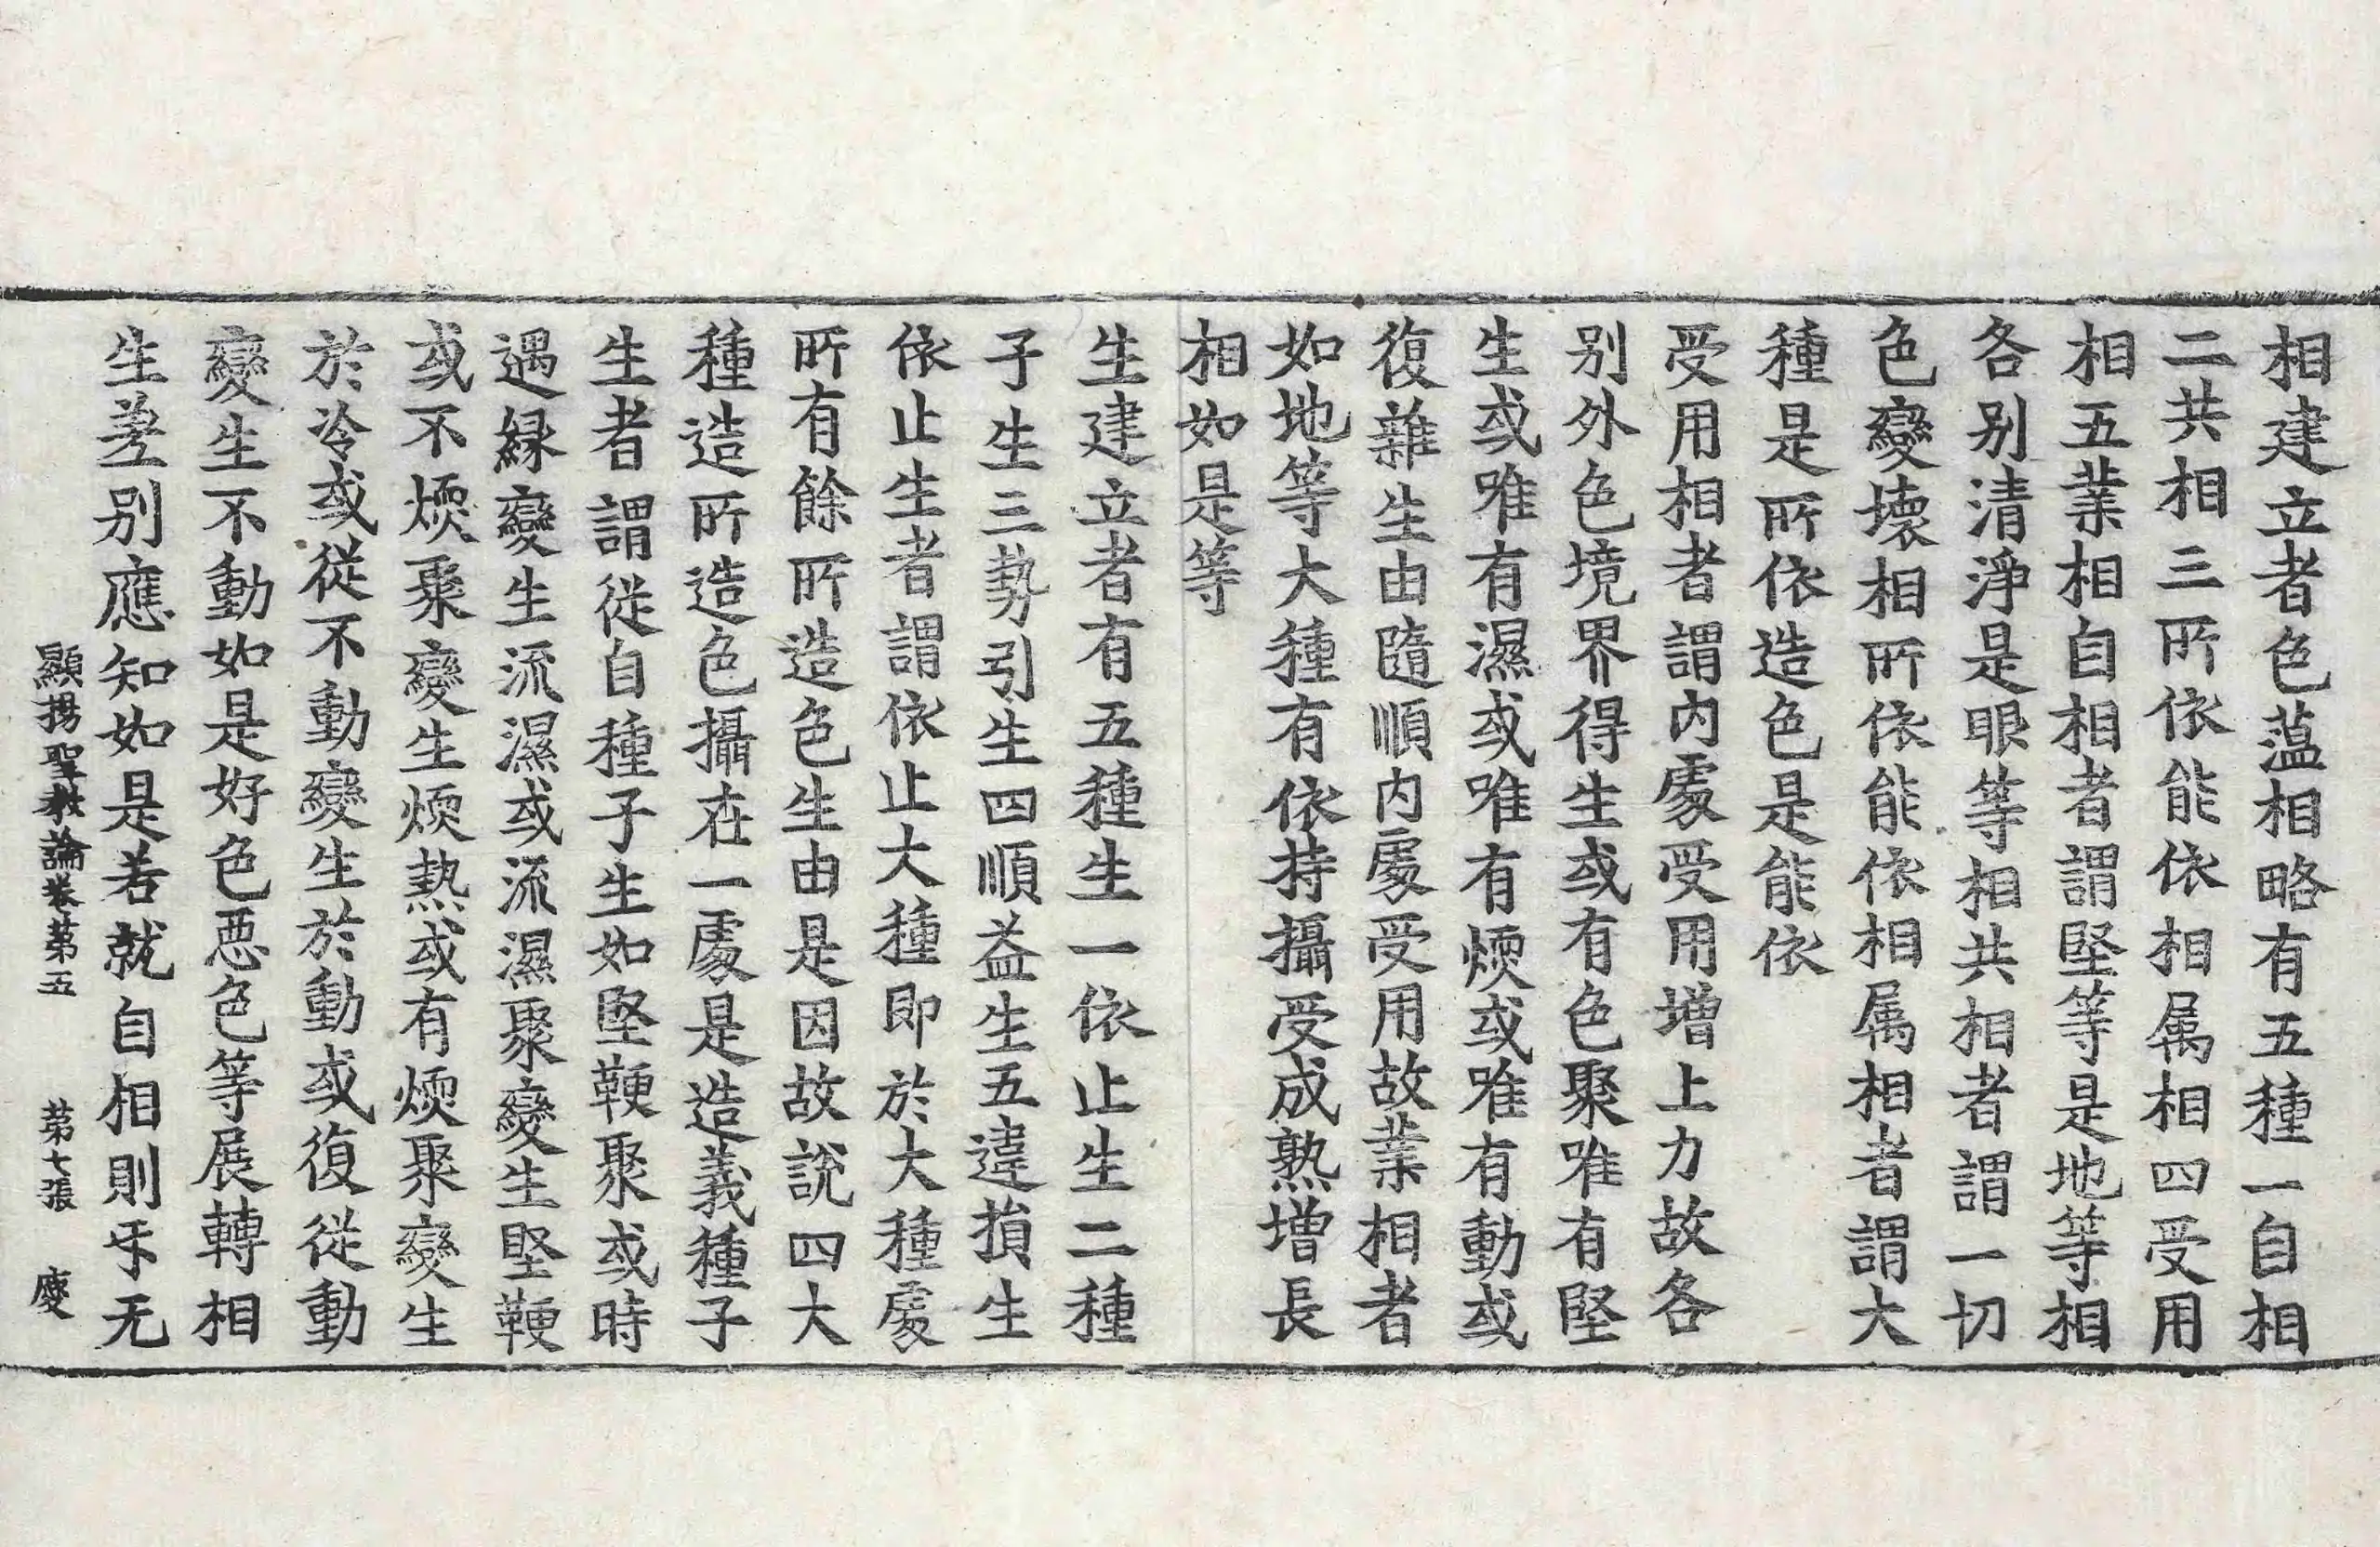 相建立者色藴相略有五種一自相
二共相三所依能依相属相四受用
相五業相自相者謂堅等是地等相
各别清淨是眼等相共相者謂一切
色變壞相所依能依相属相者謂大
種是所依造色是能依
受用相者謂内處受用增上力故各
别外色境界得生或有色聚唯有堅
生或唯有濕或唯有煗或唯有動或
復雜生由隨順内處受用故業相者
如地等大種有依持攝受成熟增長
相如是等
生建立者有五種生一依止生二種
子生三勢引生四順益生五違損生
依止生者謂依止大種即於大種處
所有餘所造色生由是因故説四大
種造所造色攝在一處是造義種子
生者謂從自種子生如堅鞕聚或時
遇縁變生流濕或流濕聚變生堅鞕
或不煗聚變生煗熱或有煗聚變生
於冷或從不動變生於動或復從動
變生不動如是好色惡色等展轉相
生差别應知如是若就自相則乎无
顯揚聖教論卷第五 第七張 慶